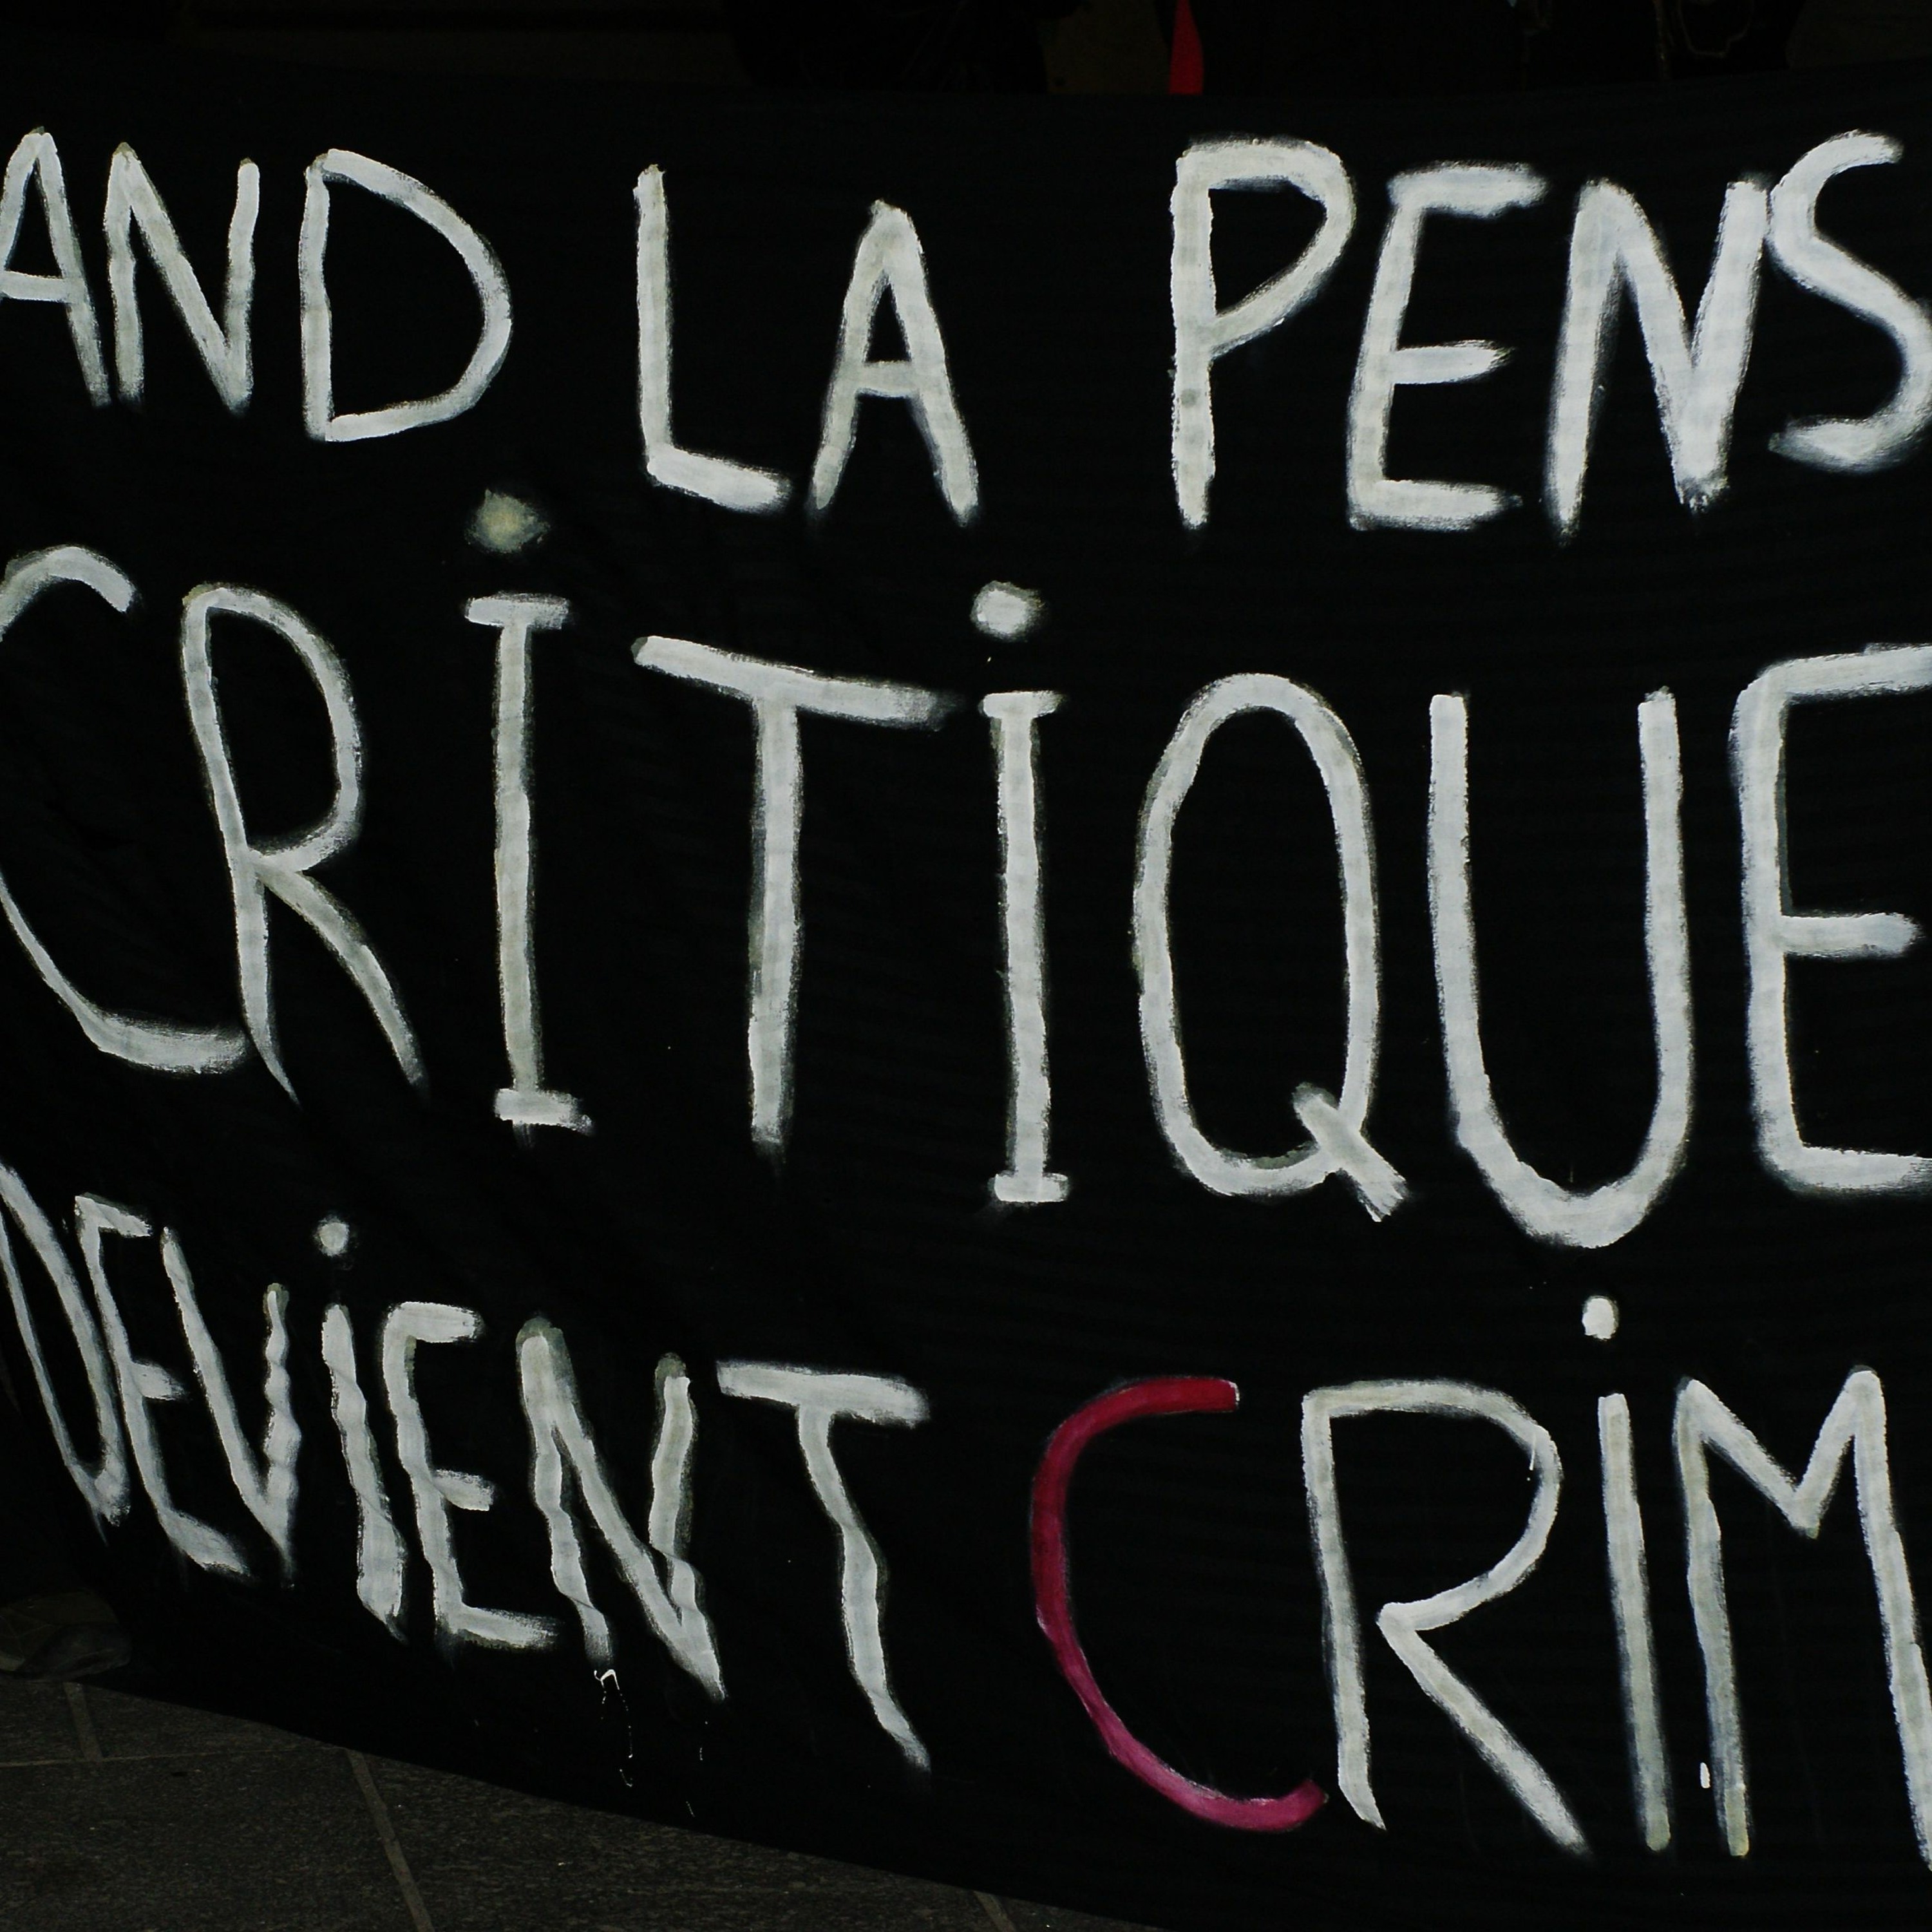 AND LA PENS
CRITIQUE
DEVIENT CRIM